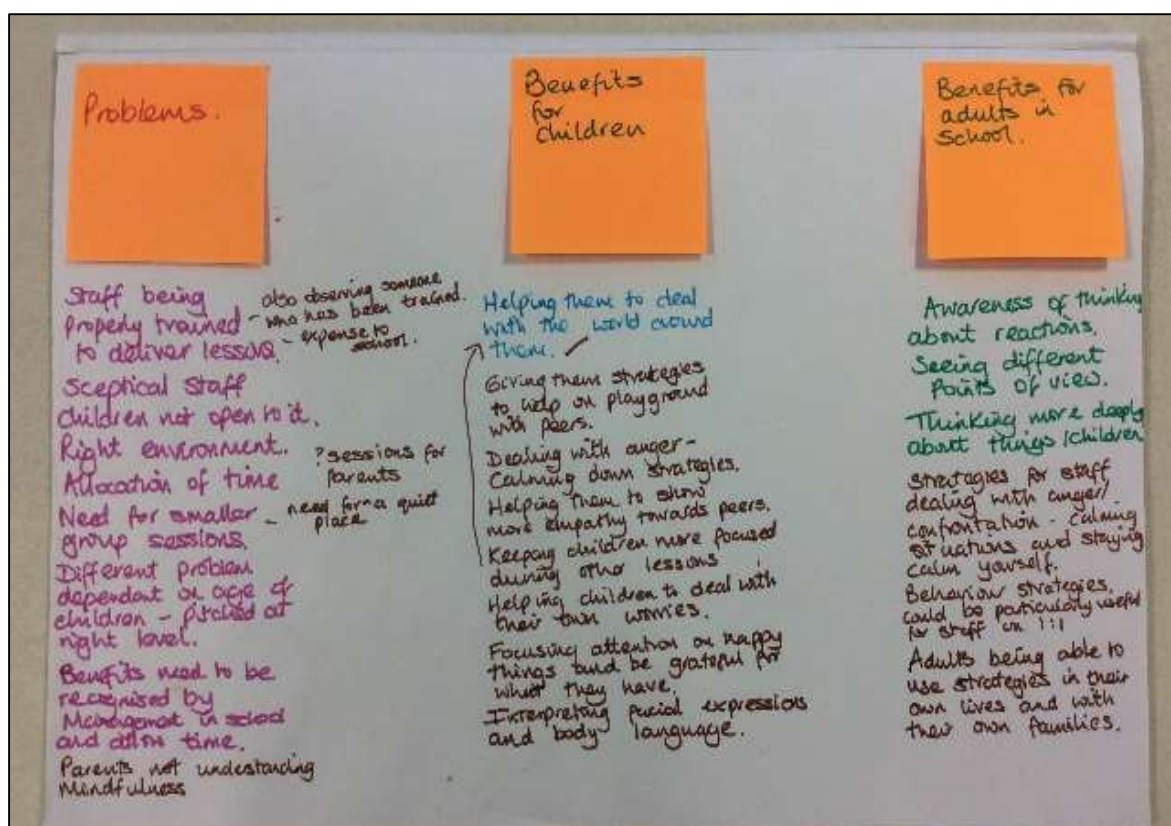 Problems.
Staff being
properly trained
to deliver lessons.
- also observing someone
who has been trained.
- expense to
school.
Sceptical staff
Children not open to it.
Right environment.
Allocation of time
? sessions for
parents
Need for smaller
group sessions.
- need for a quiet
place
Different problem
dependant on age of
children - pitched at
right level.
Benefits need to be
recognised by
Management in school
and allow time.
Parents not understanding
Mindfulness
Benefits
for
children
Helping them to deal
with the world around
them.
Giving them strategies
to help on playground
with peers.
Dealing with anger -
Calming down strategies.
Helping them to show
more empathy towards peers.
Keeping children more focused
during other lessons
Helping children to deal with
their own worries.
Focusing attention on happy
things and be grateful for
what they have.
Interpreting facial expressions
and body language.
Benefits for
adults in
school.
Awareness of thinking
about reactions.
Seeing different
Points of view.
Thinking more deeply
about things/children
Strategies for staff
dealing with anger/
confrontation - calming
situations and staying
calm yourself.
Behaviour strategies.
could be particularly useful
for staff on 1:1
Adults being able to
use strategies in their
own lives and with
their own families.